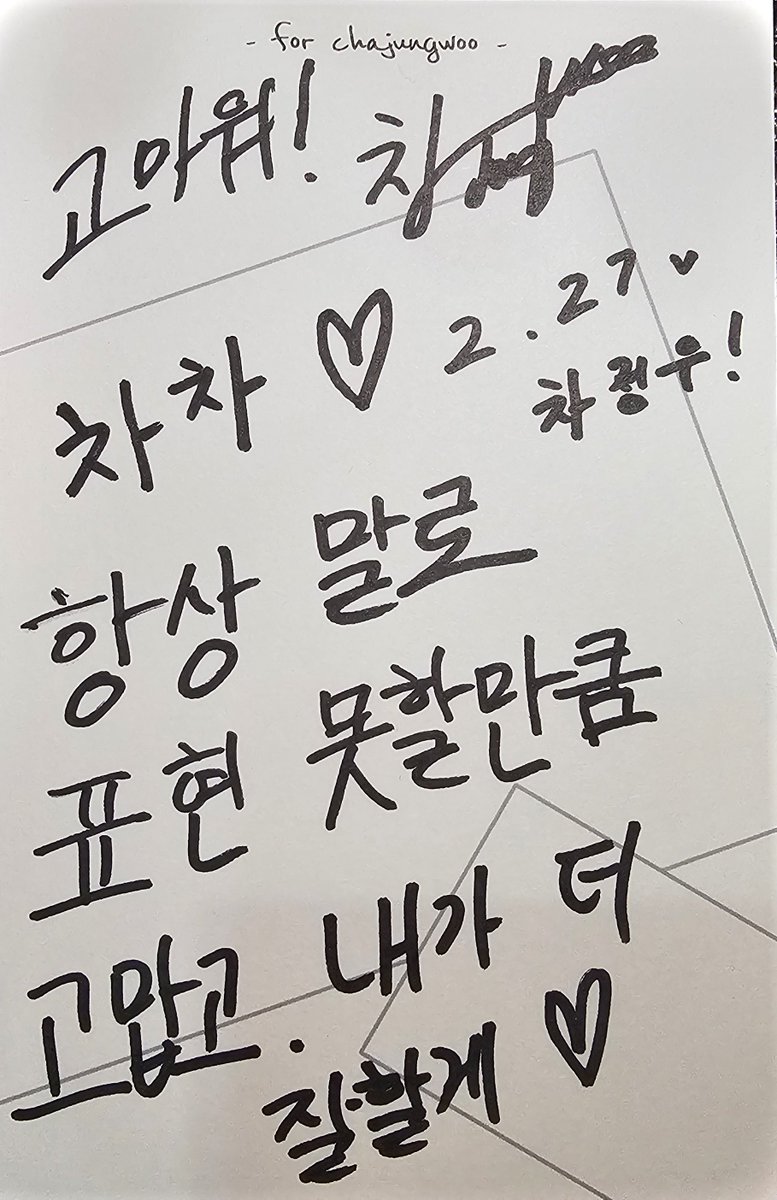 - for chajungwoo -
고마워!
차차 ♡ 2.27♥
차정우!
항상 말로
표현 못할만큼
고맙고. 내가 더
잘할게 ♡